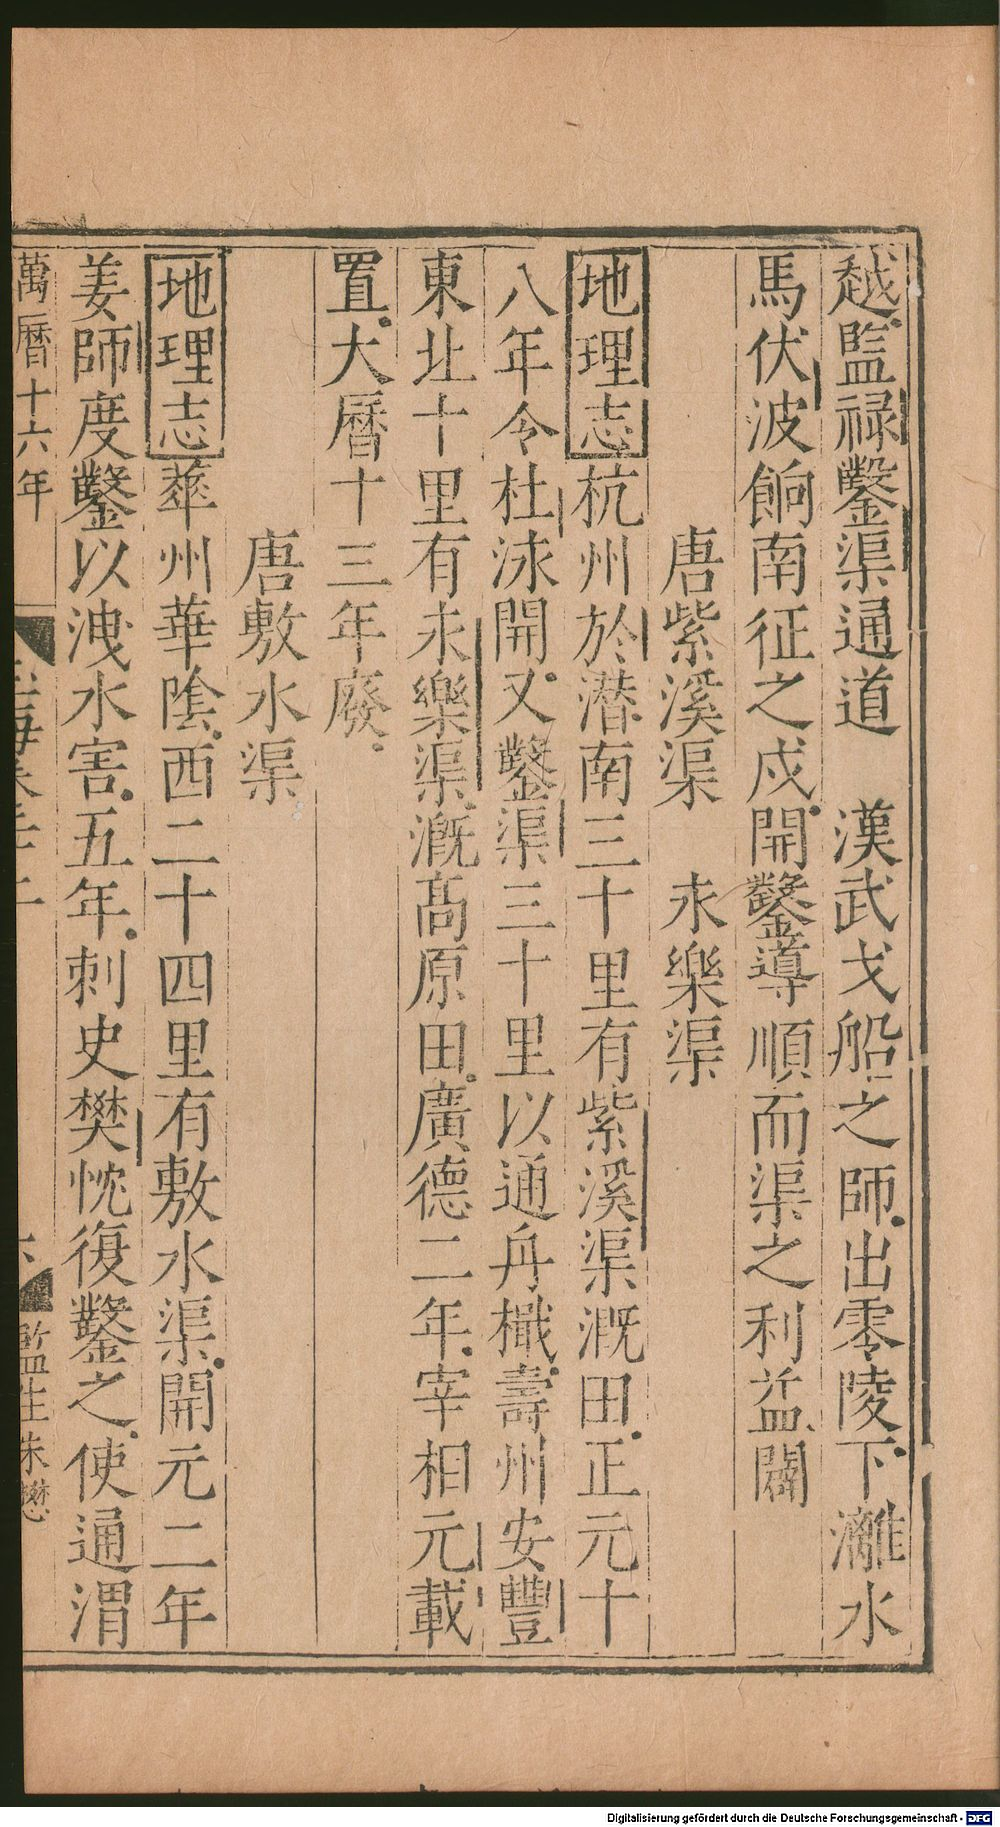 越監禄鑿渠通道　漢武戈船之師出零陵下灕水
馬伏波餉南征之戍開鑿導順而渠之利益闢
唐紫溪渠　永樂渠
地理志杭州於潜南三十里有紫溪渠溉田正元十
八年令杜泳開又鑿渠三十里以通舟檝壽州安豐
東北十里有永樂渠溉高原田廣德二年宰相元載
置大曆十三年廢
唐敷水渠
地理志華州華陰西二十四里有敷水渠開元二年
姜師度鑿以洩水害五年刺史樊忱復鑿之使通渭
萬曆十六年　監生朱懋
Digitalisierung gefördert durch die Deutsche Forschungsgemeinschaft - DFG